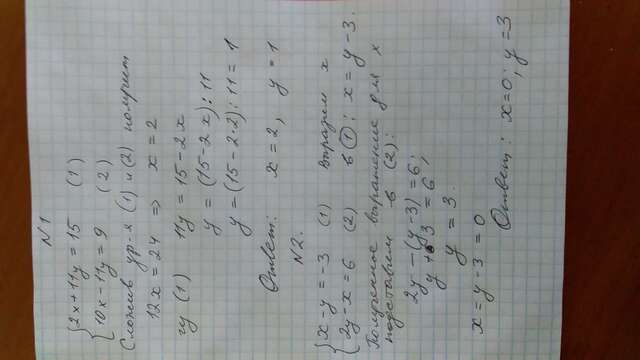 N1
{2x+11y = 15 (1)
{10x-11y = 9 (2)
Сложив ур-я (1) и (2) получит
12x = 24 => x = 2
(1) 11y = 15-2x
y = (15-2x):11
y = (15-2·2):11 = 1
Ответ: x=2, y=1
N2.
{x-y = -3 (1) Выразим x
{2y-x = 6 (2) в (1): x = y-3.
Полученное выражение для x
подставим в (2):
2y-(y-3)=6;
y+3 = 6
y = 3.
x = y-3 = 0
Ответ: x=0; y=3